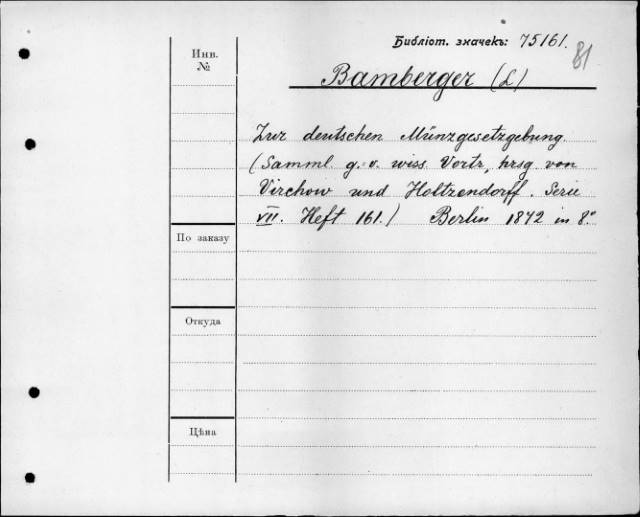 Библіот. значекъ: 75161.
81
Инв.
№
Bamberger (L)
Zur deutschen Münzgesetzgebung.
(Samml g. v. wiss. Vortr, hrsg von
Virchow und Holtzendorff. Serie
VII. Heft 161.) Berlin 1872 in 8°
По заказу
Откуда
Цѣна